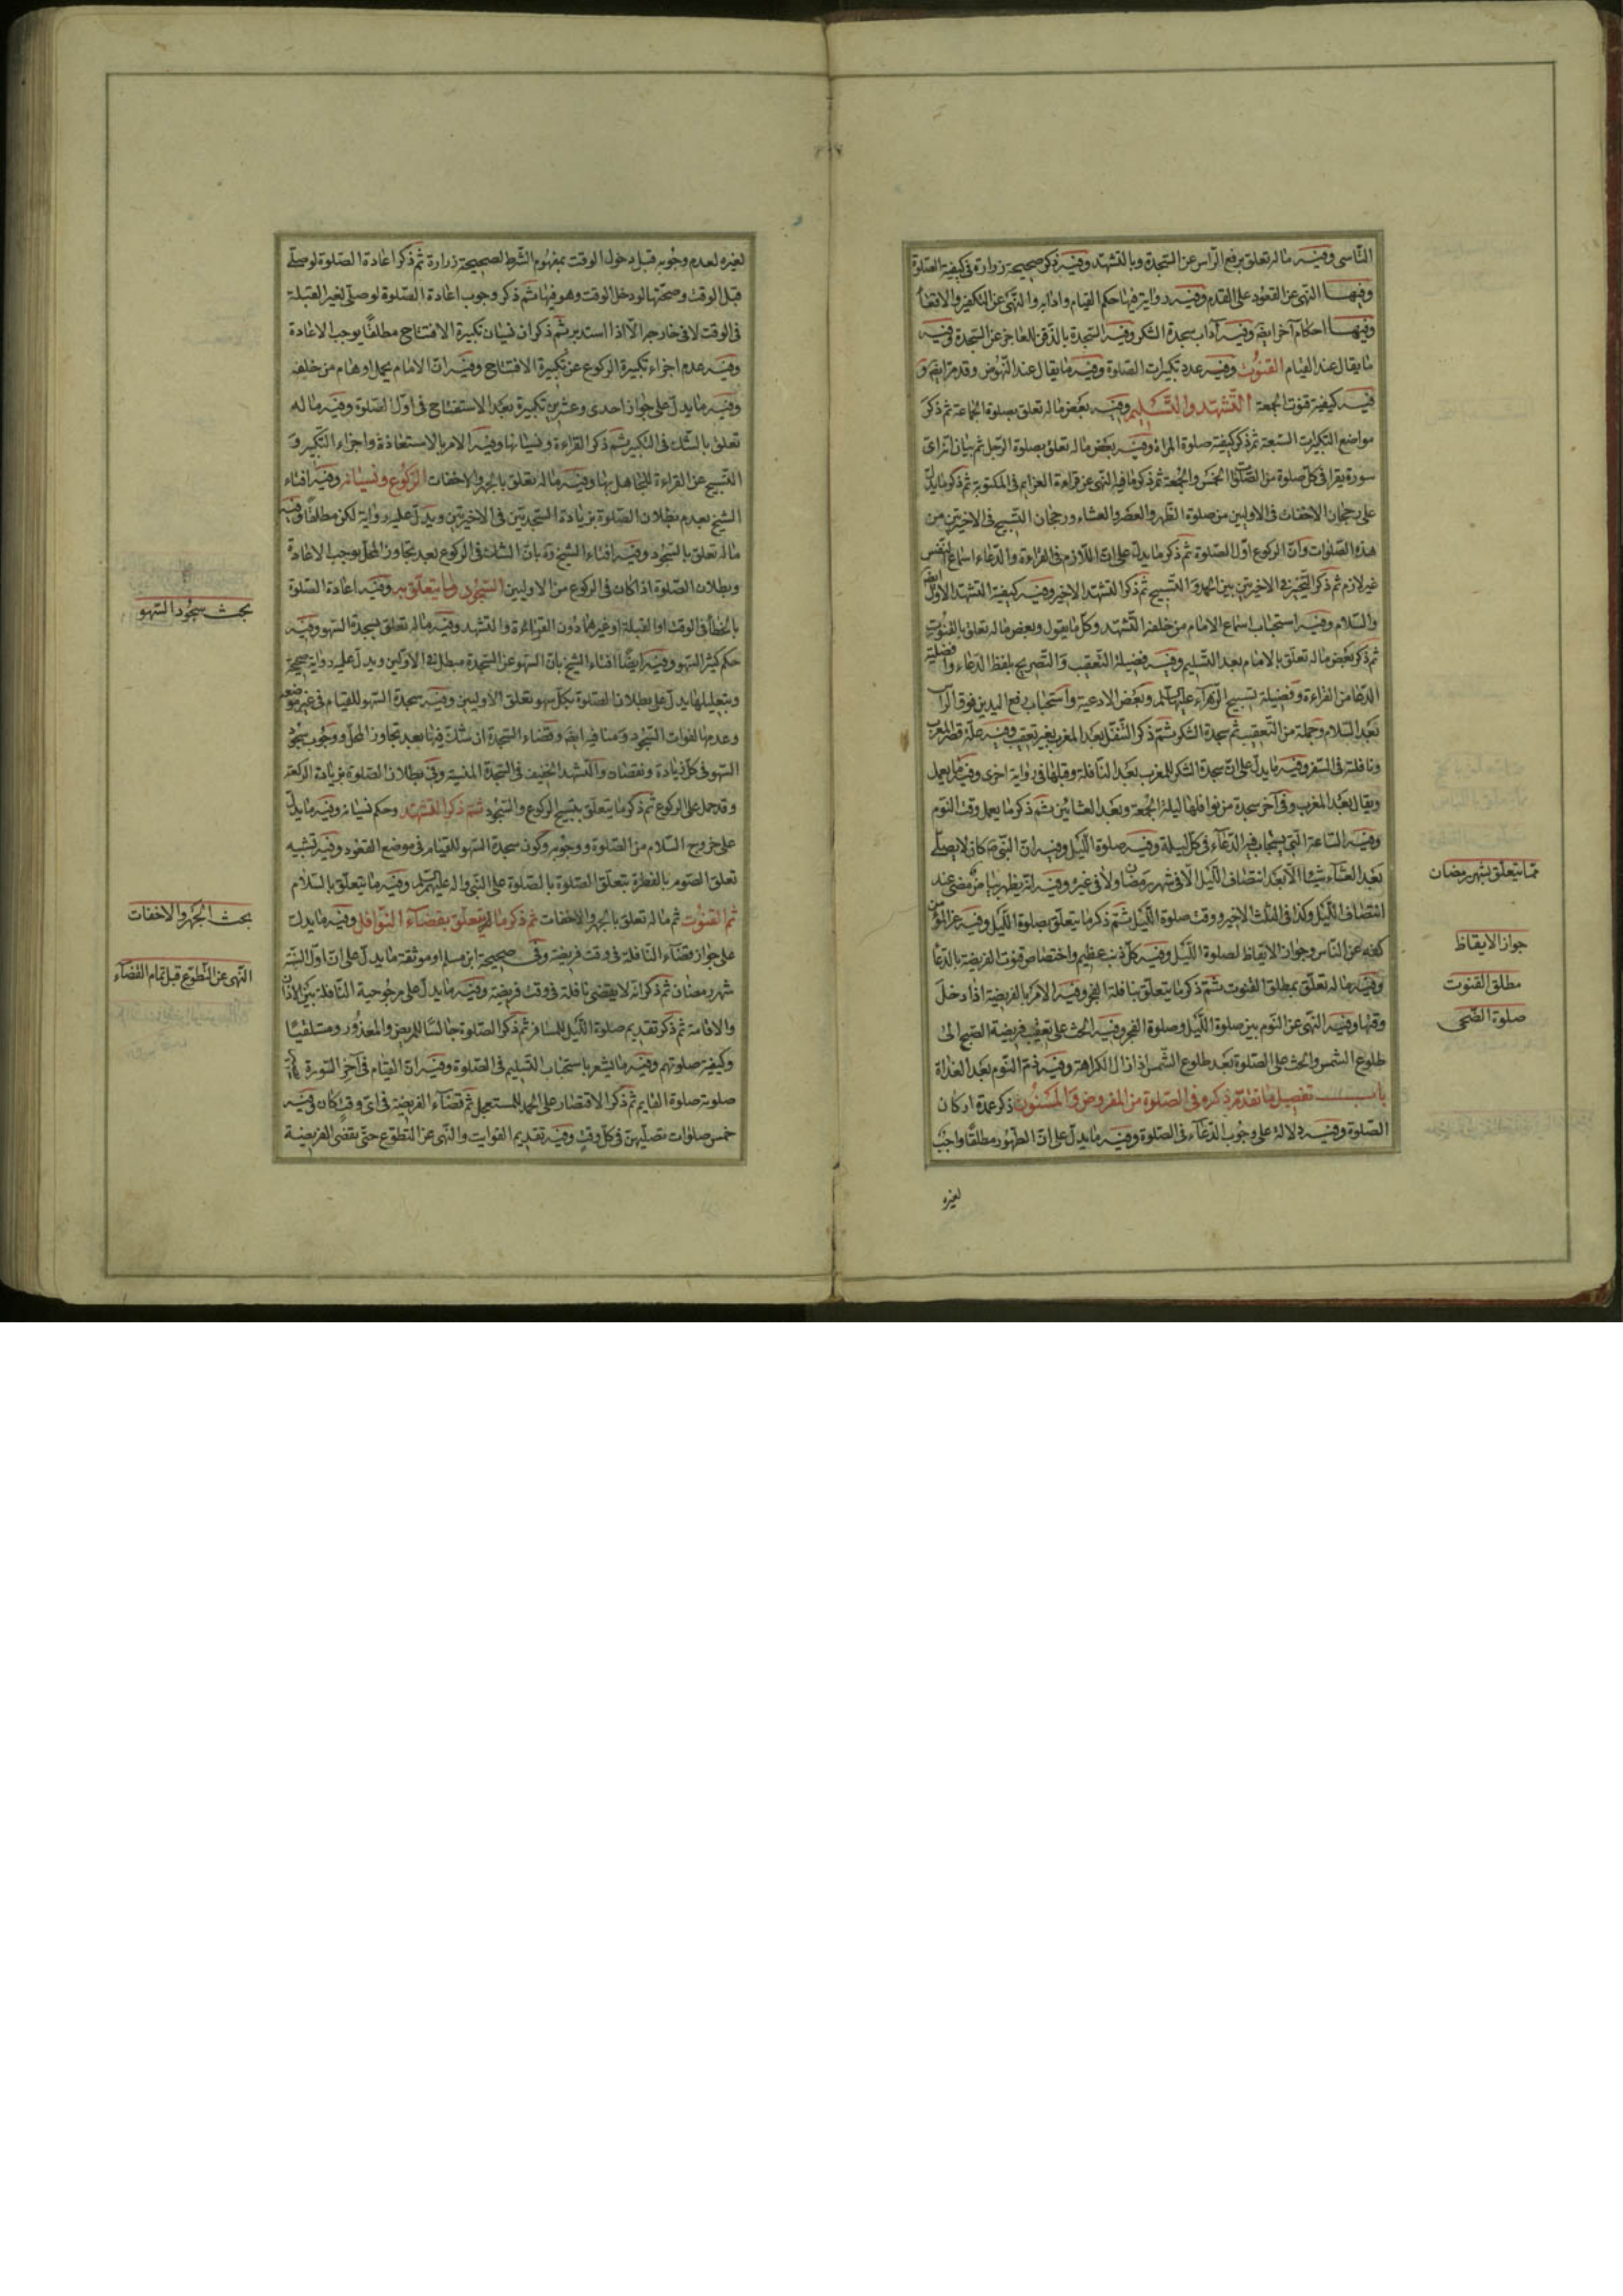 التأسى وفيه ماله تعلق برفع الرأس عن السجدة وبالتشهد وفيه ذكر صحيحة زرارة فى كيفية الصلوة
وفيها النهى عن القعود على القدم وفيه رواية فيها حكم القيام وادابه والنهى عن التكفير والاقعاء
وفيها احكام آخر ايضا وفيه آداب سجدة الشكر وفيه السجدة بالذقن للعاجز عن السجدة وفيه
ما يقال عند القيام القنوت وفيه عدد تكبيرات الصلوة وفيه ما يقال عند النهوض وقد مر ايضا و
فيه كيفية قنوت الجمعة التشهد والتسليم وفيه بعض ماله تعلق بصلوة الجماعة ثم ذكر
مواضع التكبيرات السبعة ثم ذكر كيفية صلوة المرأة وفيه بعض ماله تعلق بصلوة الرجل ثم بيان انه اى
سورة يقرا فى كل صلوة من الصلوات الخمس والجمعة ثم ذكر ما فيه النهى عن قراءة العزايم فى المكتوبة ثم ذكر ما يدل
على رجحان الاخفات فى الاوليين من صلوة الظهر والعصر والعشاء ورجحان التسبيح فى الاخيرتين من
هذه الصلوات وان الركوع اول الصلوة ثم ذكر ما يدل على ان اللازم فى القراءة والدعاء اسماع النفس
غير لازم ثم ذكر التخيير فى الاخيرتين بين الحمد والتسبيح ثم ذكر التشهد الاخير وفيه كيفية التشهد الاول ايضا
والسلام وفيه استحباب اسماع الامام من خلفه التشهد وكل ما يقول وبعض ماله تعلق بالقنوت
ثم ذكر بعض ماله تعلق بالامام بعد التسليم وفيه فضيلة التعقيب والتصريح بلفظ الدعاء وافضلية
الدعا من القراءة وفضيلة تسبيح الزهراء عليها السلم وبعض الادعية واستحباب رفع اليدين فوق الرأس
بعد السلام وجملة من التعقيب ثم سجدة الشكر ثم ذكر التنفل بعد المغرب بغير تعقيب وفيه علة قصر المغرب
ونافلته فى السفر وفيه ما يدل على ان سجدة الشكر للمغرب بعد النافلة وقبلها فى رواية اخرى وفيه ما يعمل
ويقال بعد المغرب وفى آخر سجدة من نوافلها ليلة الجمعة وبعد العشائين ثم ذكر ما يعمل وقت النوم
وفيه الساعة التى يستجاب فيه الدعاء فى كل ليلة وفيه صلوة الليل وفيه ان النبى ص كان لا يصلى
بعد العشاء شيئا الا بعد انتصاف الليل لا فى شهر رمضان ولا فى غيره وفيه
انتصاف الليل وكذا فى الثلث الاخير ووقت صلوة الليل ثم ذكر ما يتعلق بصلوة الليل وفيه عز المؤمن
كفه عن الناس وجواز الايقاظ لصلوة الليل وفيه كل ذنب عظيم واختصاص قنوت الفريضة بالدعا
وفيه ماله تعلق بمطلق القنوت ثم ذكر ما يتعلق بنافلة الفجر وفيه الامر بالفريضة اذا دخل
وقتها وفيه النهى عن النوم بين صلوة الليل وصلوة الفجر وفيه الحث على تعقيب فريضة الصبح الى
طلوع الشمس والحث على الصلوة بعد طلوع الشمس اذا زال الكراهة وفيه ذم النوم بعد الغداة
باب تفصيل ما تقدم ذكره فى الصلوة من المفروض والمسنون ذكر عدة اركان
الصلوة وفيه دلالة على وجوب الدعاء فى الصلوة وفيه ما يدل على ان الطهور مطلقا واجب
لغيره
مما يتعلق بشهر رمضان
جواز الايقاظ
مطلق القنوت
صلوة الضحى
لغيره لعدم وجوبه قبل دخول الوقت بمفهوم الشرط لصحيحة زرارة ثم ذكر اعادة الصلوة لو صلى
قبل الوقت وصحتها لو دخل الوقت وهو فيها ثم ذكر وجوب اعادة الصلوة لو صلى لغير القبلة
فى الوقت لا فى خارجه الا اذا استدبر ثم ذكر ان نسيان تكبيرة الافتتاح مطلقا يوجب الاعادة
وفيه عدم اجزاء تكبيرة الركوع عن تكبيرة الافتتاح وفيه ان الامام يحمل اوهام من خلفه
وفيه ما يدل على جواز احدى وعشرين تكبيرة بعد الاستفتاح فى اول الصلوة وفيه ماله
تعلق بالشك فى التكبير ثم ذكر القراءة ونسيانها وفيه الامر بالاستعاذة واجزاء التكبير و
التسبيح عن القراءة للجاهل بها وفيه ماله تعلق بالجهر والاخفات الركوع ونسيانه وفيه افتاء
الشيخ بعدم بطلان الصلوة بزيادة السجدتين فى الاخيرتين ويدل عليه رواية لكن مطلقا وفيه
ماله تعلق بالسجود وفيه افتاء الشيخ ره بان الشك فى الركوع بعد تجاوز المحل يوجب الاعادة
وبطلان الصلوة اذا كان فى الركوع من الاوليين السجود وما يتعلق به وفيه اعادة الصلوة
بالخطأ فى الوقت او القبلة او غيرهما دون القراءة والتشهد وفيه ماله تعلق بسجدة السهو وفيه
حكم كثير السهو وفيه ايضا افتاء الشيخ بان السهو عن السجدة مبطل فى الاولين ويدل عليه رواية صحيحة
وبتعليلها يدل على بطلان الصلوة بكل سهو تعلق الاوليين وفيه سجدة السهو للقيام فى غير موضعه
وعدمها لفوات السجود وما ينافيه ايضا وقضاء السجدة ان شك فيها بعد تجاوز المحل ووجوب سجود
السهو فى كل زيادة ونقصان والتشهد الخفيف فى السجدة المنسية وفى بطلان الصلوة بزيادة الركعة
وقد حمل على الركوع ثم ذكر ما يتعلق بتسبيح الركوع والسجود ثم ذكر التشهد وحكم نسيانه وفيه ما يدل
على خروج السلام من الصلوة ووجوبه وكون سجدة السهو للقيام فى موضع القعود وفيه تشبيه
تعلق الصوم بالفطرة بتعلق الصلوة بالصلوة على النبى واله عليهم السلم وفيه ما يتعلق بالسلام
ثم القنوت ثم ماله تعلق بالجهر والاخفات ثم ذكر ماله تعلق بقضاء النوافل وفيه ما يدل
على جواز قضاء النافلة فى وقت فريضة وفى صحيحة ابن مسلم او موثقة ما يدل على ان اول السنة
شهر رمضان ثم ذكر انه لا يقضى نافلة فى وقت فريضة وفيه ما يدل على مرجوحية النافلة بين الاذان
والاقامة ثم ذكر تقديم صلوة الليل للمسافر ثم ذكر الصلوة جالسا للمريض والمعذور ومستلقيا
وكيفية صلوتهم وفيه ما يشعر باستحباب التسليم فى الصلوة وفيه ان القيام فى آخر السورة
صلوته صلوة القايم ثم ذكر الاقتصار على الحمد للمستعجل ثم قضاء الفريضة فى اى وقت كان وفيه
خمس صلوات تصليهن فى كل وقت وفيه تقديم الفوايت والنهى عن التطوع حتى يقضى الفريضة
بحث سجود السهو
بحث الجهر والاخفات
النهى عن التطوع قبل تمام القضاء